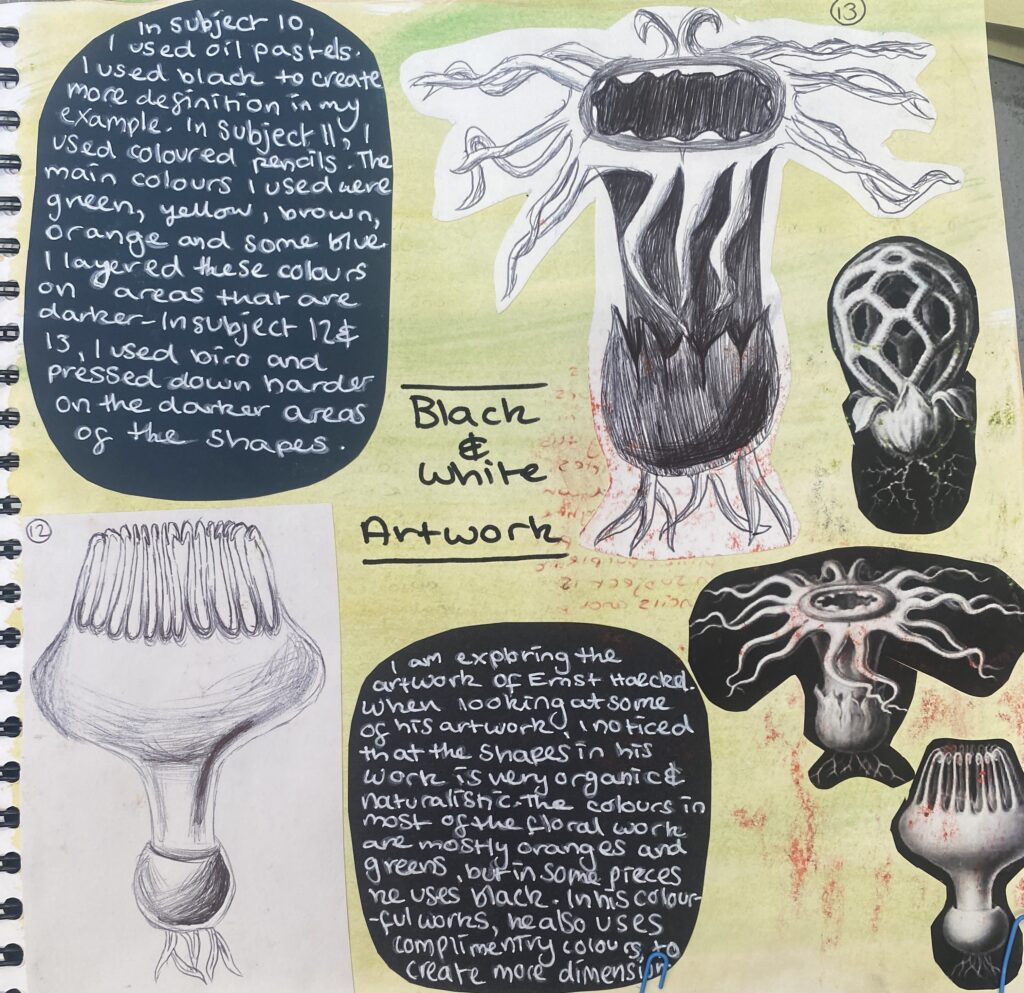 In subject 10,
I used oil pastels.
I used black to create
more definition in my
example. In subject 11, I
used coloured pencils. The
main colours I used were
green, yellow, brown,
orange and some blue.
I layered these colours
on areas that are
darker-In subject 12&
13, I used biro and
pressed down harder
on the darker areas
of the shapes.
13
Black
&
White
Artwork
12
I am exploring the
artwork of Ernst Haeckel.
When looking at some
of his artwork, I noticed
that the shapes in his
work is very organic &
naturalistic. The colours in
most of the floral work
are mostly oranges and
greens, but in some pieces
he uses black. In his colour-
-ful works, he also uses
complimentry colours, to
create more dimension